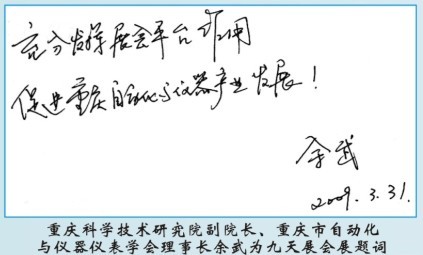 充分发挥展会平台作用
促进重庆自动化与仪器产业发展！
余武
2009.3.31.
重庆科学技术研究院副院长、重庆市自动化
与仪器仪表学会理事长余武为九天展会展题词